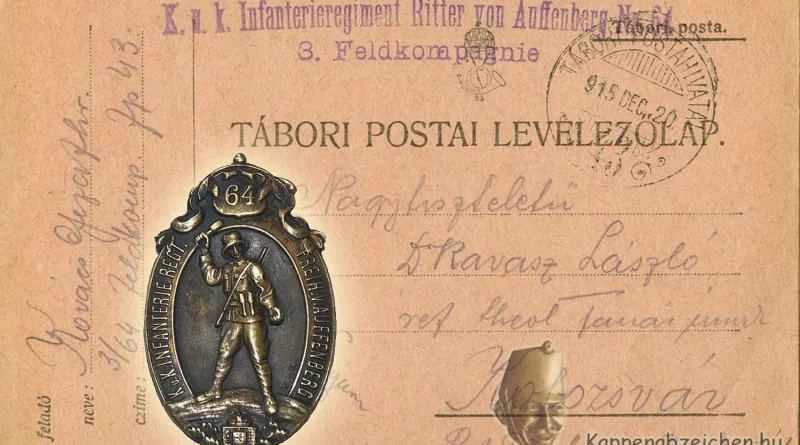 K. u. k. Infanterieregiment Ritter von Auffenberg Nr. 64
3. Feldkompagnie
Tábori posta.
TÁBORI POSTAHIVATAL
915 DEC. 20
TÁBORI POSTAI LEVELEZŐLAP.
Nagytiszteletű
Dr Ravasz László
ref theol Tanár
Kolozsvár
feladó
neve: Kovács
czime: 3/64 Feldkomp. fp 43.
64
K.u.K.INFANTERIE.REGT. FREIH.V.AUFFENBERG
Kappenabzeichen.hu